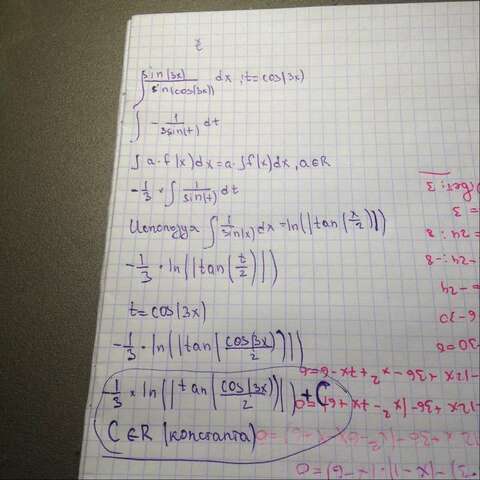 ∫ sin(3x)/sin(cos(3x)) dx, t=cos(3x)
∫ - 1/3sin(t) dt
∫ a·f(x)dx=a·∫f(x)dx, a∈R
-1/3 × ∫ 1/sin(t) dt
Используя ∫ 1/sin(x) dx=ln(|tan(x/2)|)
-1/3 · ln(|tan(t/2)|)
t=cos(3x)
-1/3 · ln(|tan(cos(3x)/2)|)
1/3 × ln(|tan(cos(3x)/2)|)+C
C∈R (константа)
вет: 3
= 3
= 24 : 8
-24 : -8
= -24
6-30
-30=6
-12x+36-x²+7x-6=6